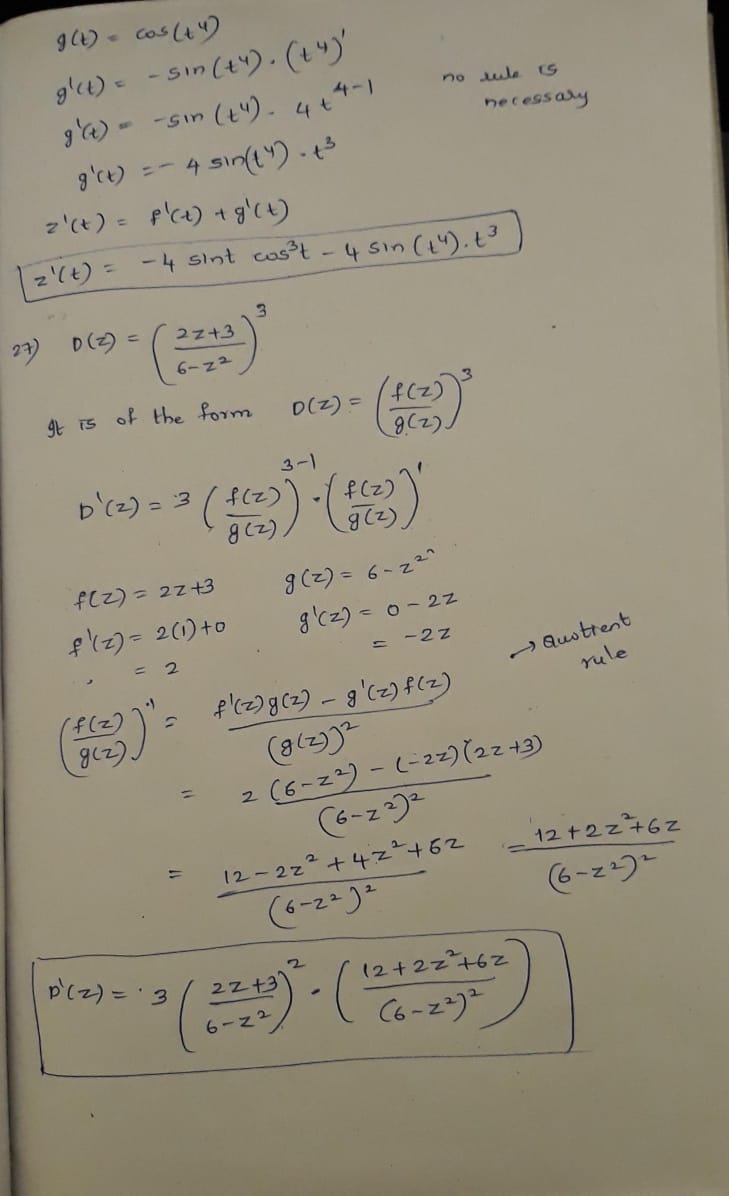 g(t) = cos(t⁴)
g'(t) = - sin(t⁴) . (t⁴)'
g'(t) = -sin(t⁴) . 4t⁴⁻¹ no rule is necessary
g'(t) = - 4 sin(t⁴) . t³
z'(t) = f'(t) + g'(t)
z'(t) = -4 sint cos³t - 4 sin(t⁴). t³
27) D(z) = ((2z+3)/(6-z²))³
It is of the form D(z) = (f(z)/g(z))³
D'(z) = 3 (f(z)/g(z))³⁻¹ . (f(z)/g(z))'
f(z) = 2z+3 g(z) = 6-z²
f'(z) = 2(1)+0 g'(z) = 0-2z
= 2 = -2z
(f(z)/g(z))' = (f'(z)g(z) - g'(z)f(z))/(g(z))² → Quotient rule
= (2(6-z²) - (-2z)(2z+3))/(6-z²)²
= (12-2z²+4z²+6z)/(6-z²)² = (12+2z²+6z)/(6-z²)²
D'(z) = 3 ((2z+3)/(6-z²))² . ((12+2z²+6z)/(6-z²)²)